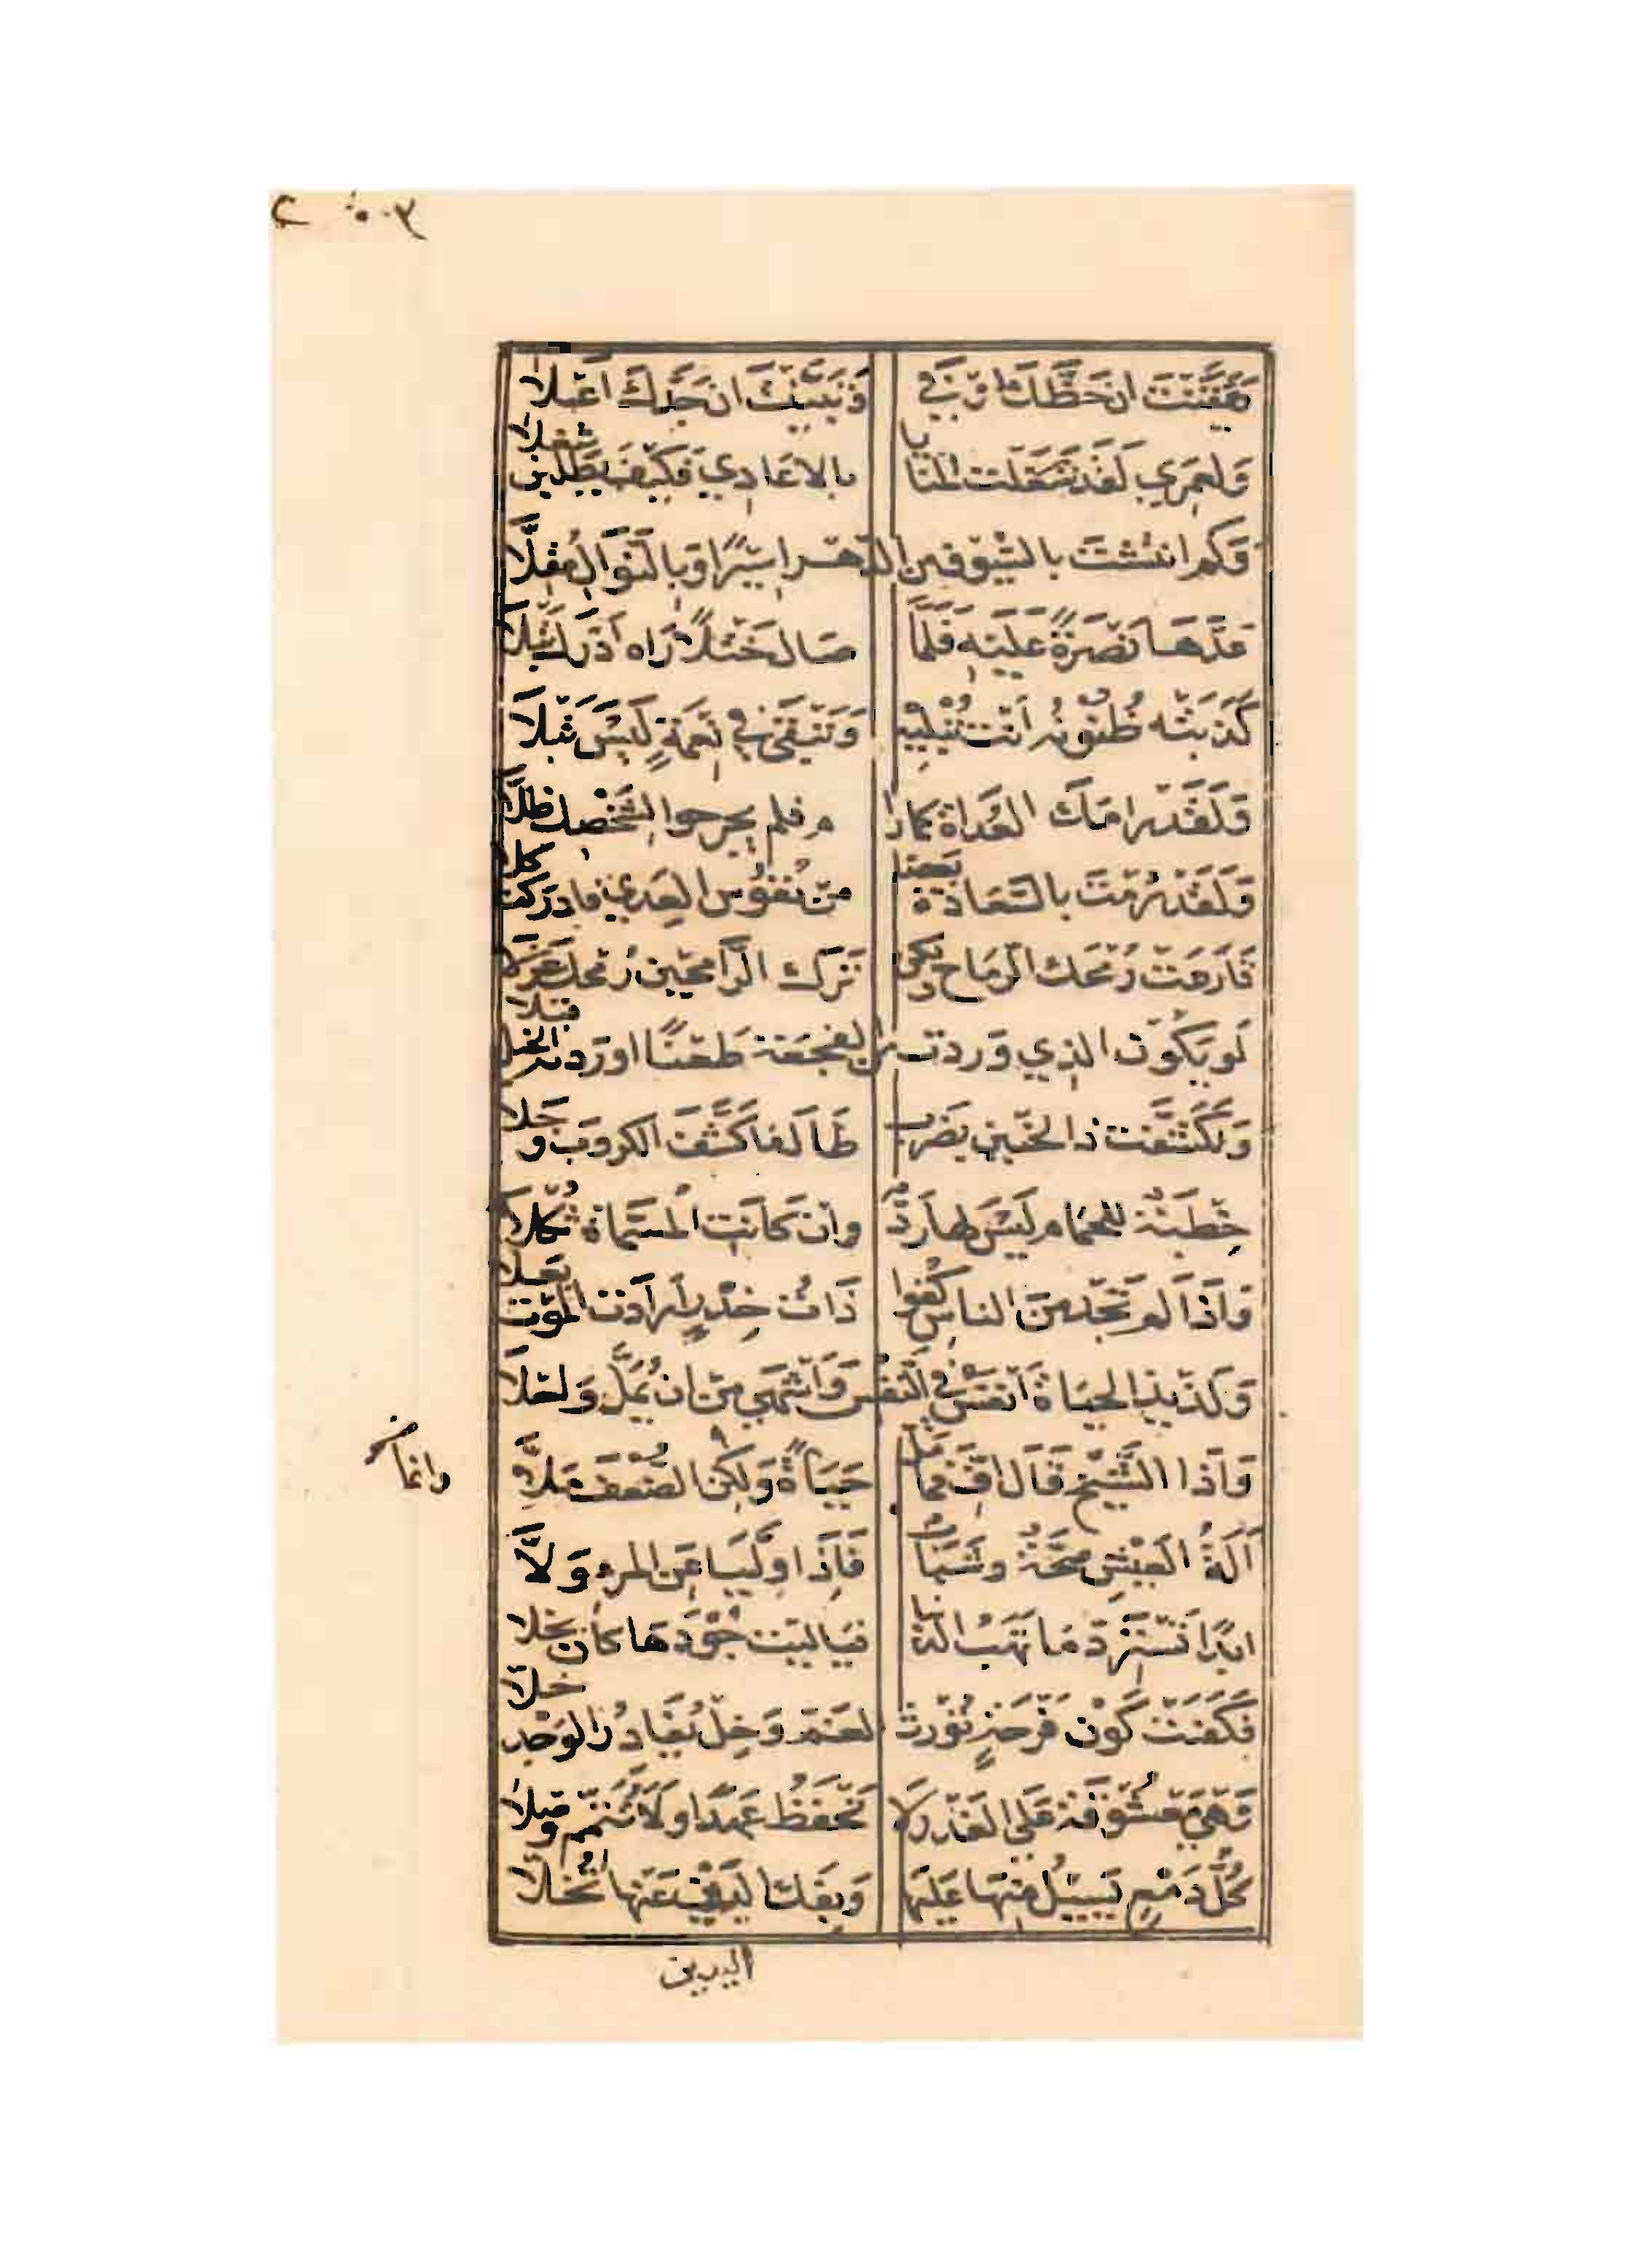 فَتَيَقَّنْتَ ان حَظَّكَ اوْفَي وَتَبَيَّنْتَ ان جَدَّكَ اعْلا
وَلعَمرِي لَقَد شَغَلت المنايا بالاعَادِي فَكَيْفَ يَطْلُبن شغلا
وَكم انتَشْتَ بالسّيُوف من الدّهر اسِيْرًا وَبالنّوَال مُقِلَّا
عَدّهَا نصْرَةً عَلَيْهِ فَلمَّا صَال خَتْلاً رَاه ادْرَك تَبْلا
كَذَبَتْه ظُنُونُه انْت تُبْلِيْه وَتَبْقَى فِي نِعْمَةٍ لَيْسَ تَبْلَا
وَلَقَدْ رَامَكَ العُدَاة كمارا م فلم يجرحوا لشَخْصِك ظلَّا
وَلَقَدْ رُمْتَ بالسَّعَادَة بعضا مِنْ نُفُوْس العِدي فادركت كلا
قَارَعَتْ رُمْحَك الرّمَاح وَلكن تَرَك الرَّامحِين رُمْحك عُزْلا
لَو يَكُون الذِي وَردت من الفجعَة طَعْنًا اورَدته الخيل قبلا
وَلكَشَّفت ذا الحَنِين بضَرب طَالمَا كَشَّفَ الكروبَ و جَلا
خِطْبَة للحمَام لَيْسَ لها رَدّ وان كَانَتِ المُسَمَّاة ثُكْلا
وَاذَا لم تَجْد مِنَ الناس كُفوا ذَاتُ خِدْرٍ ارَادَت الموْت بَعلا
وَلَذِيْذ الحيَاة انفَسُ في النّفْس وَاشْهَي مِنْ ان يُمَلَّ وَاحْلَا
وَاذَا الشَّيْخ قَالَ افّ فمَا مَلّ حَيَاةً وَلكِن الضّعْفَ مَلَّا
وانما
آلَةُ العَيْشِ صِحَّةٌ وشَبَاب فَاِذَا وَلَّيَا عَنِ المرءِ وَلَّا
ابَدًا تَسْتَرِدّ مَا تَهَبُ الدنيا فيَاليْت جُوْدَهَا كان بخلا
فكَفَتْ كَوْن فَرْحَةٍ تُوْرِث الغَمّ وَخِلّ يُغَادِرُ الوَجْد خلا
وَهْيَ مَعْشُوقَة عَلي الغَدْر لَا تَحْفَظُ عَهْدًا وَلَا تُتَمِّم وصْلا
كُلُّ دَمْعٍ يَسِيْلُ مِنْهَا عَلَيْهَا وَبِفَكّ اليَدَيْن عَنْهَا تُخَلَّا
اليدين